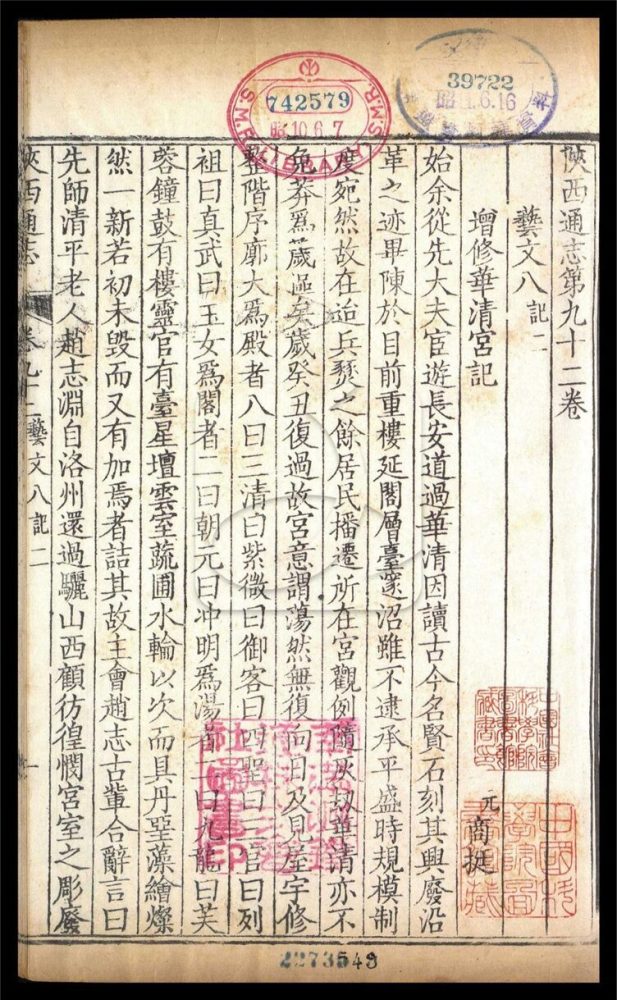 742579
10.6.7
S.M.R.
39722
1.6.16
陝西通志第九十二卷
藝文八 記二
增修華清宮記 元 商挺
始余從先大夫官遊長安道過華清因讀古今名賢石刻其興廢沿
革之迹畢陳於目前重樓延閣層臺邃沼雖不逮承平盛時規模制
度宛然故在迨兵燹之餘居民播遷所在宮觀例隨灰刼華清亦不
免莽爲區矣歲癸丑復過故宮意謂蕩然無復向日及見屋宇修
整階序廓大爲殿者八曰三清曰紫微曰御客曰四聖曰三官曰列
祖曰真武曰玉女爲閣者二曰朝元曰冲明爲湯者二曰九龍曰芙
蓉鐘鼓有樓靈官有臺星壇雲室蔬圃水輪以次而具丹堊藻繪燦
然一新若初未毁而又有加焉者詰其故主會趙志古輩合辭言曰
先師清平老人趙志淵自洛州還過驪山西顧彷徨憫宮室之彫廢
陝西通志 卷九十二 藝文八 記二 一
2273543